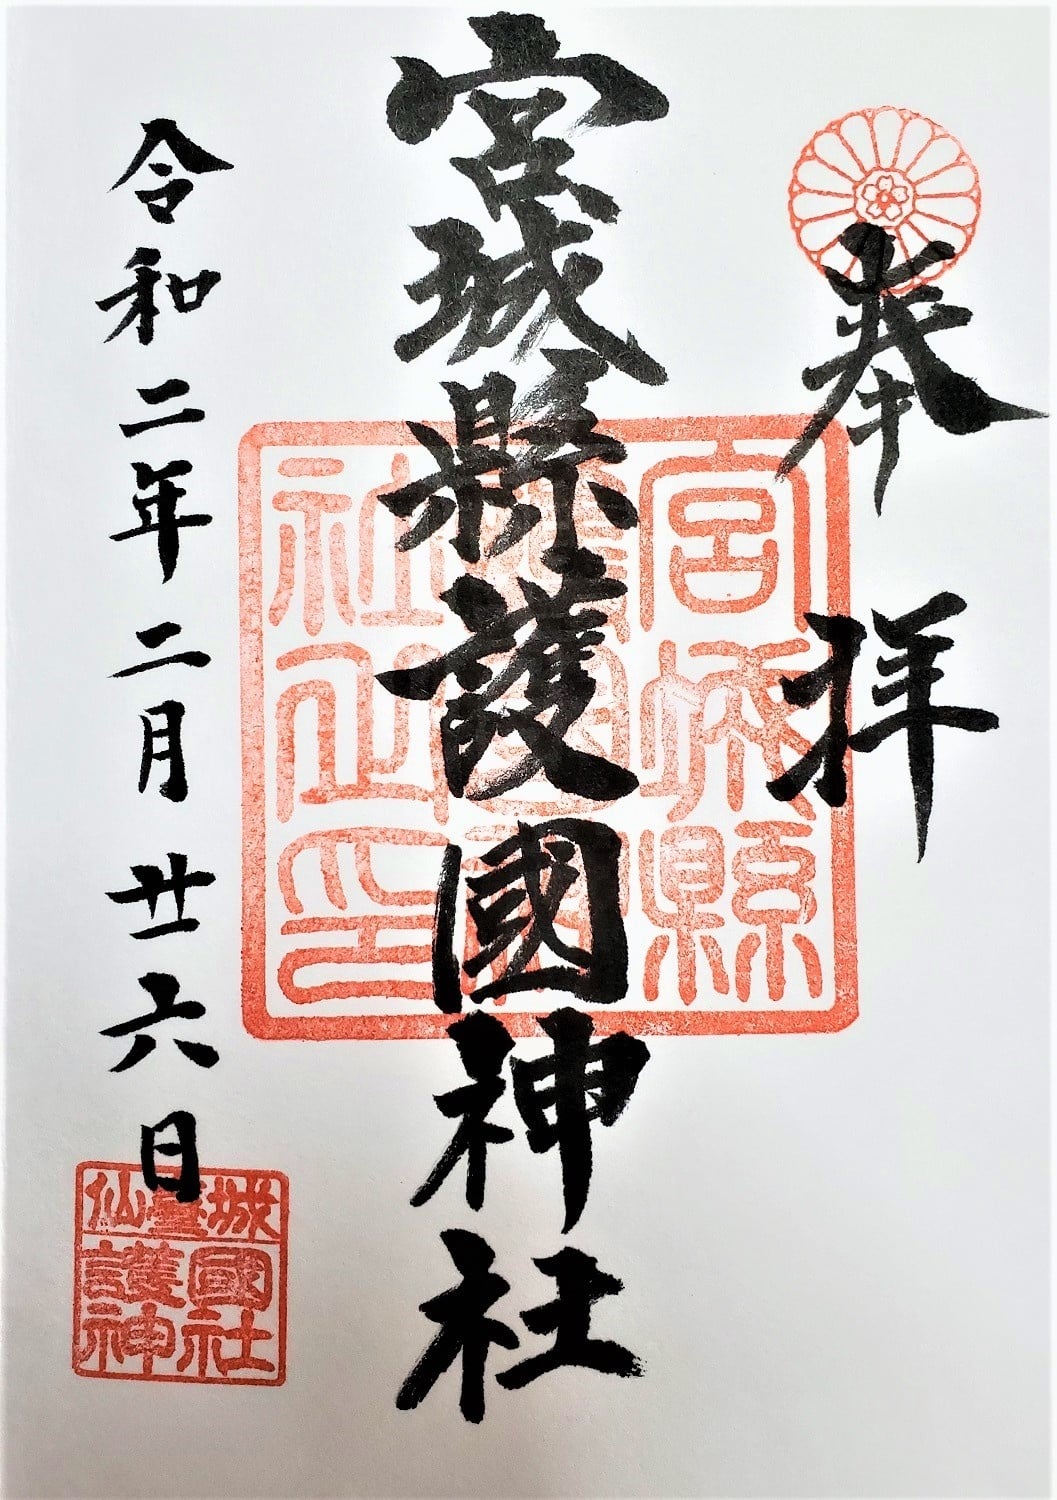 奉拝
宮城縣護國神社
宮城縣
護國神
社之印
令和二年二月廿六日
仙臺城
護國
神社